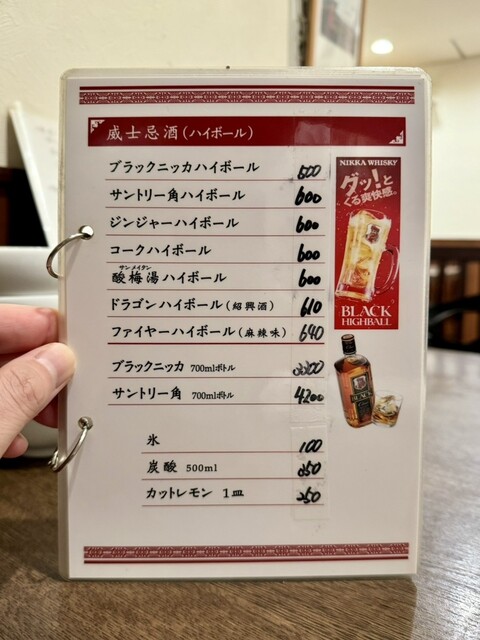 威士忌酒(ハイボール)
ブラックニッカハイボール 500
サントリー角ハイボール 600
ジンジャーハイボール 600
コークハイボール 600
サンメイタン
酸梅湯ハイボール 600
ドラゴンハイボール(紹興酒) 610
ファイヤーハイボール(麻辣味) 640
ブラックニッカ 700mlボトル
サントリー角 700mlボトル 4200
氷 100
炭酸 500ml
カットレモン 1皿 250
NIKKA WHISKY
ダッ!と
くる爽快感。
BLACK
HIGHBALL
BLACK